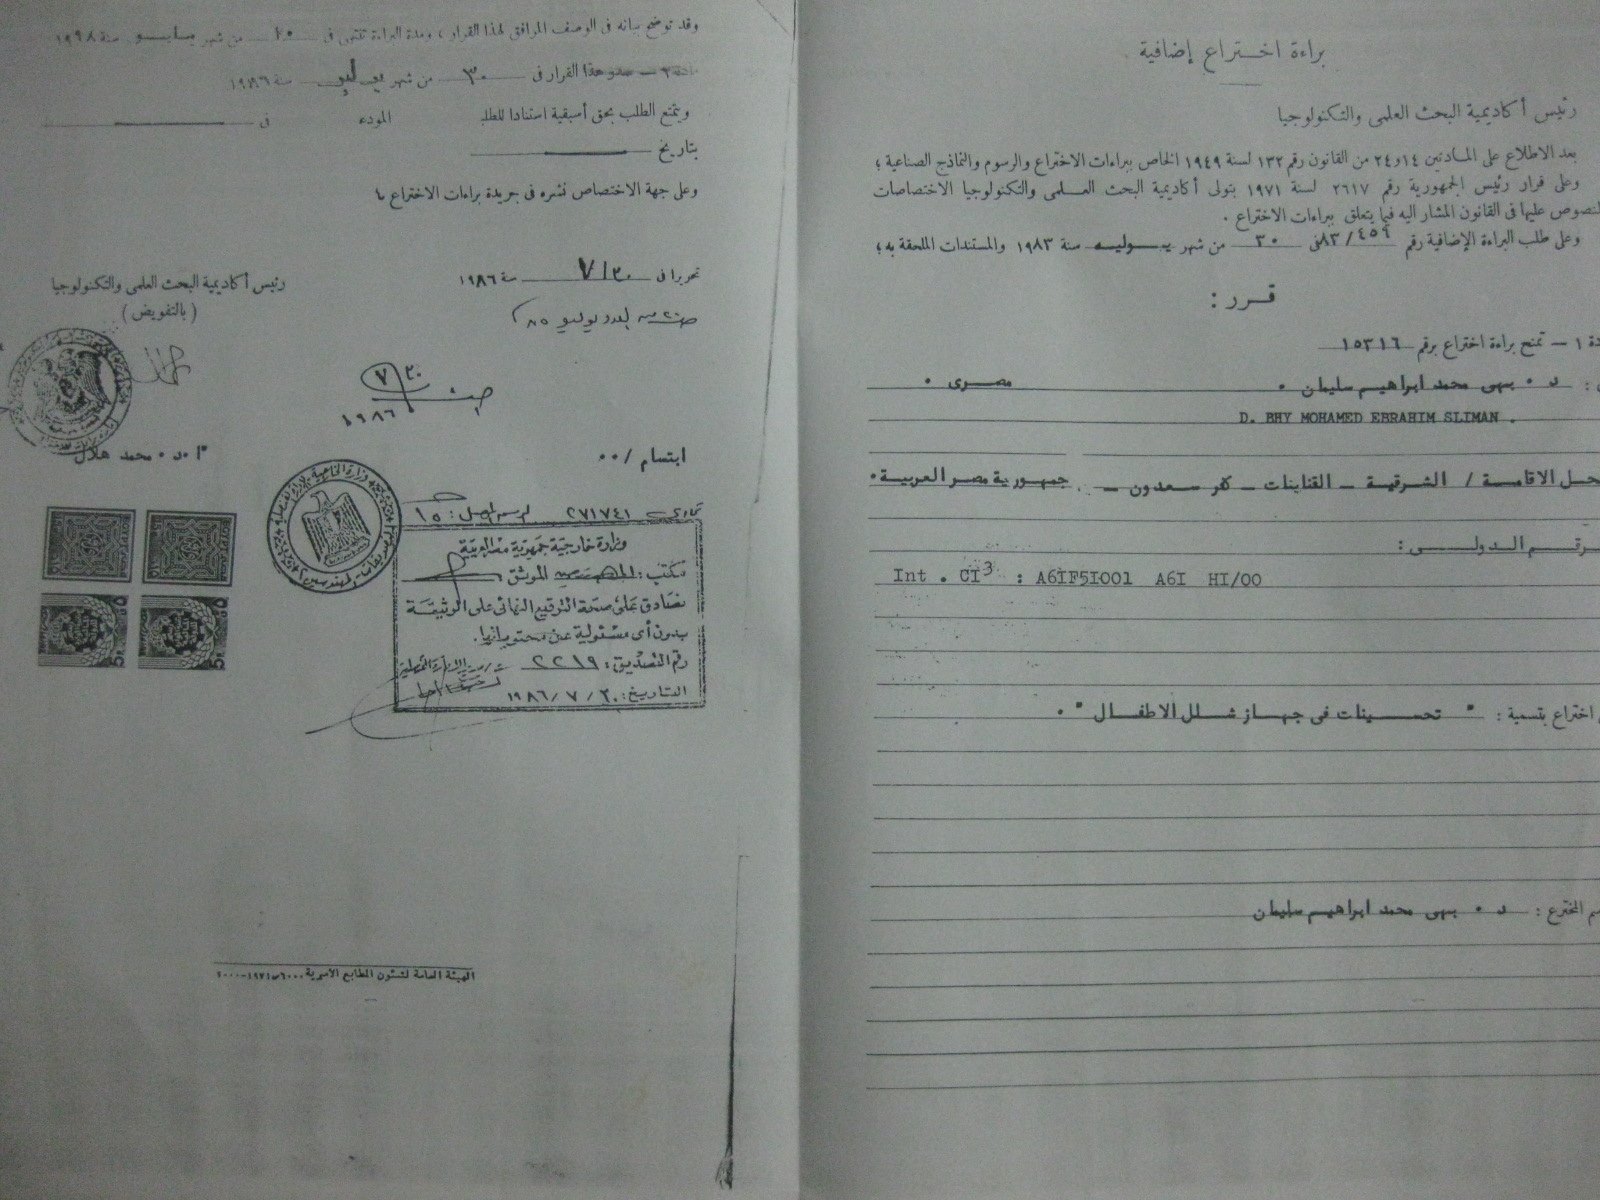 براءة اختراع إضافية
رئيس أكاديمية البحث العلمى والتكنولوجيا
بعد الاطلاع على المادتين ١٤و٢٤ من القانون رقم ١٣٢ لسنة ١٩٤٩ الخاص ببراءات الاختراع والرسوم والنماذج الصناعية ؛
وعلى قرار رئيس الجمهورية رقم ٢٦١٧ لسنة ١٩٧١ بتولى أكاديمية البحث العلمى والتكنولوجيا الاختصاصات
لنصوص عليها فى القانون المشار اليه فيما يتعلق ببراءات الاختراع .
وعلى طلب البراءة الإضافية رقم ٨٣/٤٥٩ فى ٣٠ من شهر يوليه سنة ١٩٨٣ والمستندات الملحقة به ؛
قرر :
دة ١ — تمنح براءة اختراع برقم ١٥٣١٦
: د . بهى محمد ابراهيم سليمان . مصرى .
D. BHY MOHAMED EBRAHIM SLIMAN .
حل الاقامة / الشرقية - القنايات - كفر سعدون - جمهورية مصر العربية .
رقم الدولى :
Int . CI3 : A6IF5I001 A6I HI/00
اختراع بتسمية : " تحسينات فى جهاز شلل الاطفال " .
م المخترع : د . بهى محمد ابراهيم سليمان
وقد توضح بيانه فى الوصف المرافق لهذا القرار ، ومدة البراءة تنتهى فى ٢٥ من شهر مايو سنة ١٩٩٨
القرار فى ٣٠ من شهر يوليو سنة ١٩٨٦
ويتمتع الطلب بحق أسبقية استنادا للطلب المودع فى
بتاريخ
وعلى جهة الاختصاص نشره فى جريدة براءات الاختراع
تحريرا فى ٧/٣٠ سنة ١٩٨٦
رئيس أكاديمية البحث العلمى والتكنولوجيا
( بالتفويض )
٧/٣٠
١٩٨٦
أ . د . محمد هلال
ابتسام / ٠٠
٢٧١٧٤١ ١٥
وزارة خارجية جمهورية مصر العربية
مكتب : الموثق
نصادق على صحة التوقيع النهائى على الوثيقة
بدون أى مسئولية عن محتوياتها .
رقم التصديق : ٢٢١٩
التاريخ : ٣٠ / ٧ / ١٩٨٦
الهيئة العامة لشئون المطابع الأميرية